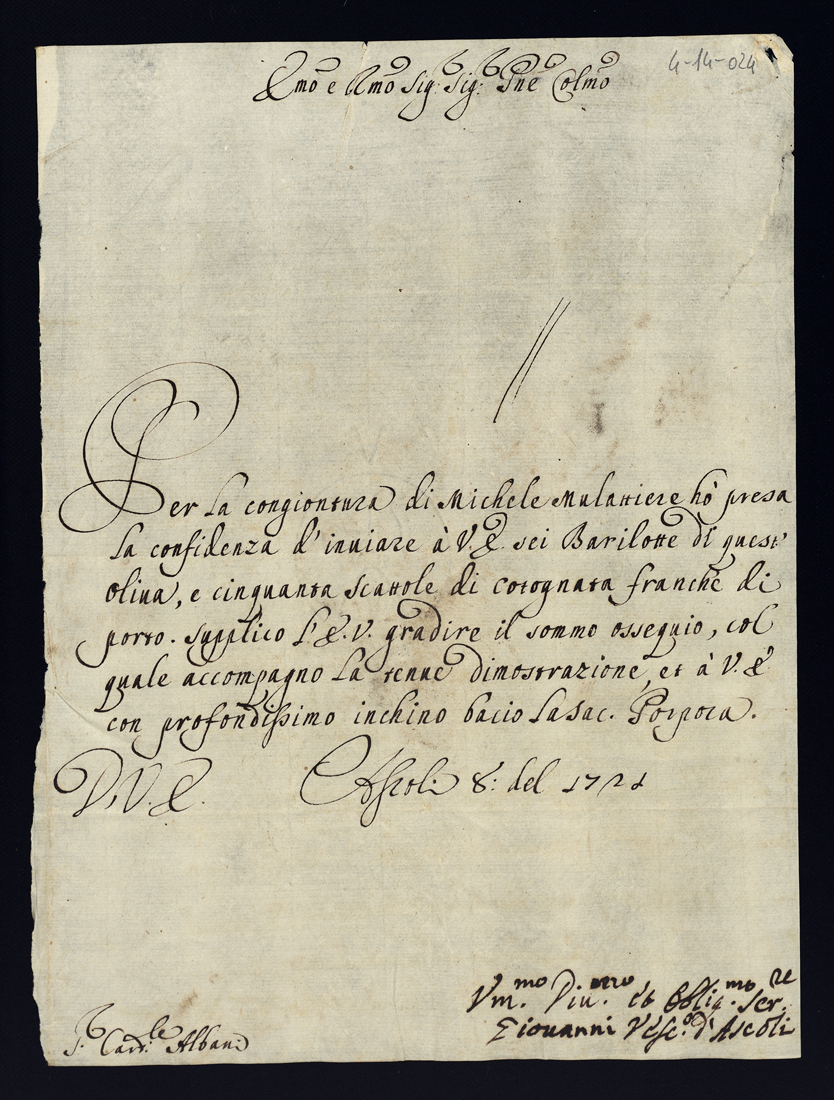 4-14-024
Emo e Rmo Sig: Sig: Pne Colmo
Per la congiontura di Michele Mulattiere hò presa
la confidenza d'inuiare à V. E. sei Barilotte di quest'
oliua, e cinquanta scattole di cotognata franche di
porto. supplico l'E. V. gradire il sommo ossequio, col
quale accompagno la tenue dimostrazione, et à V. E.
con profondissimo inchino bacio la Sac. Porpora.
D. V. E. Ascoli 8: del 1721
Vm.mo Diu.mo et Oblig.mo Ser.re
Giouanni Vesc.o d'Ascoli
S. Card.le Albani